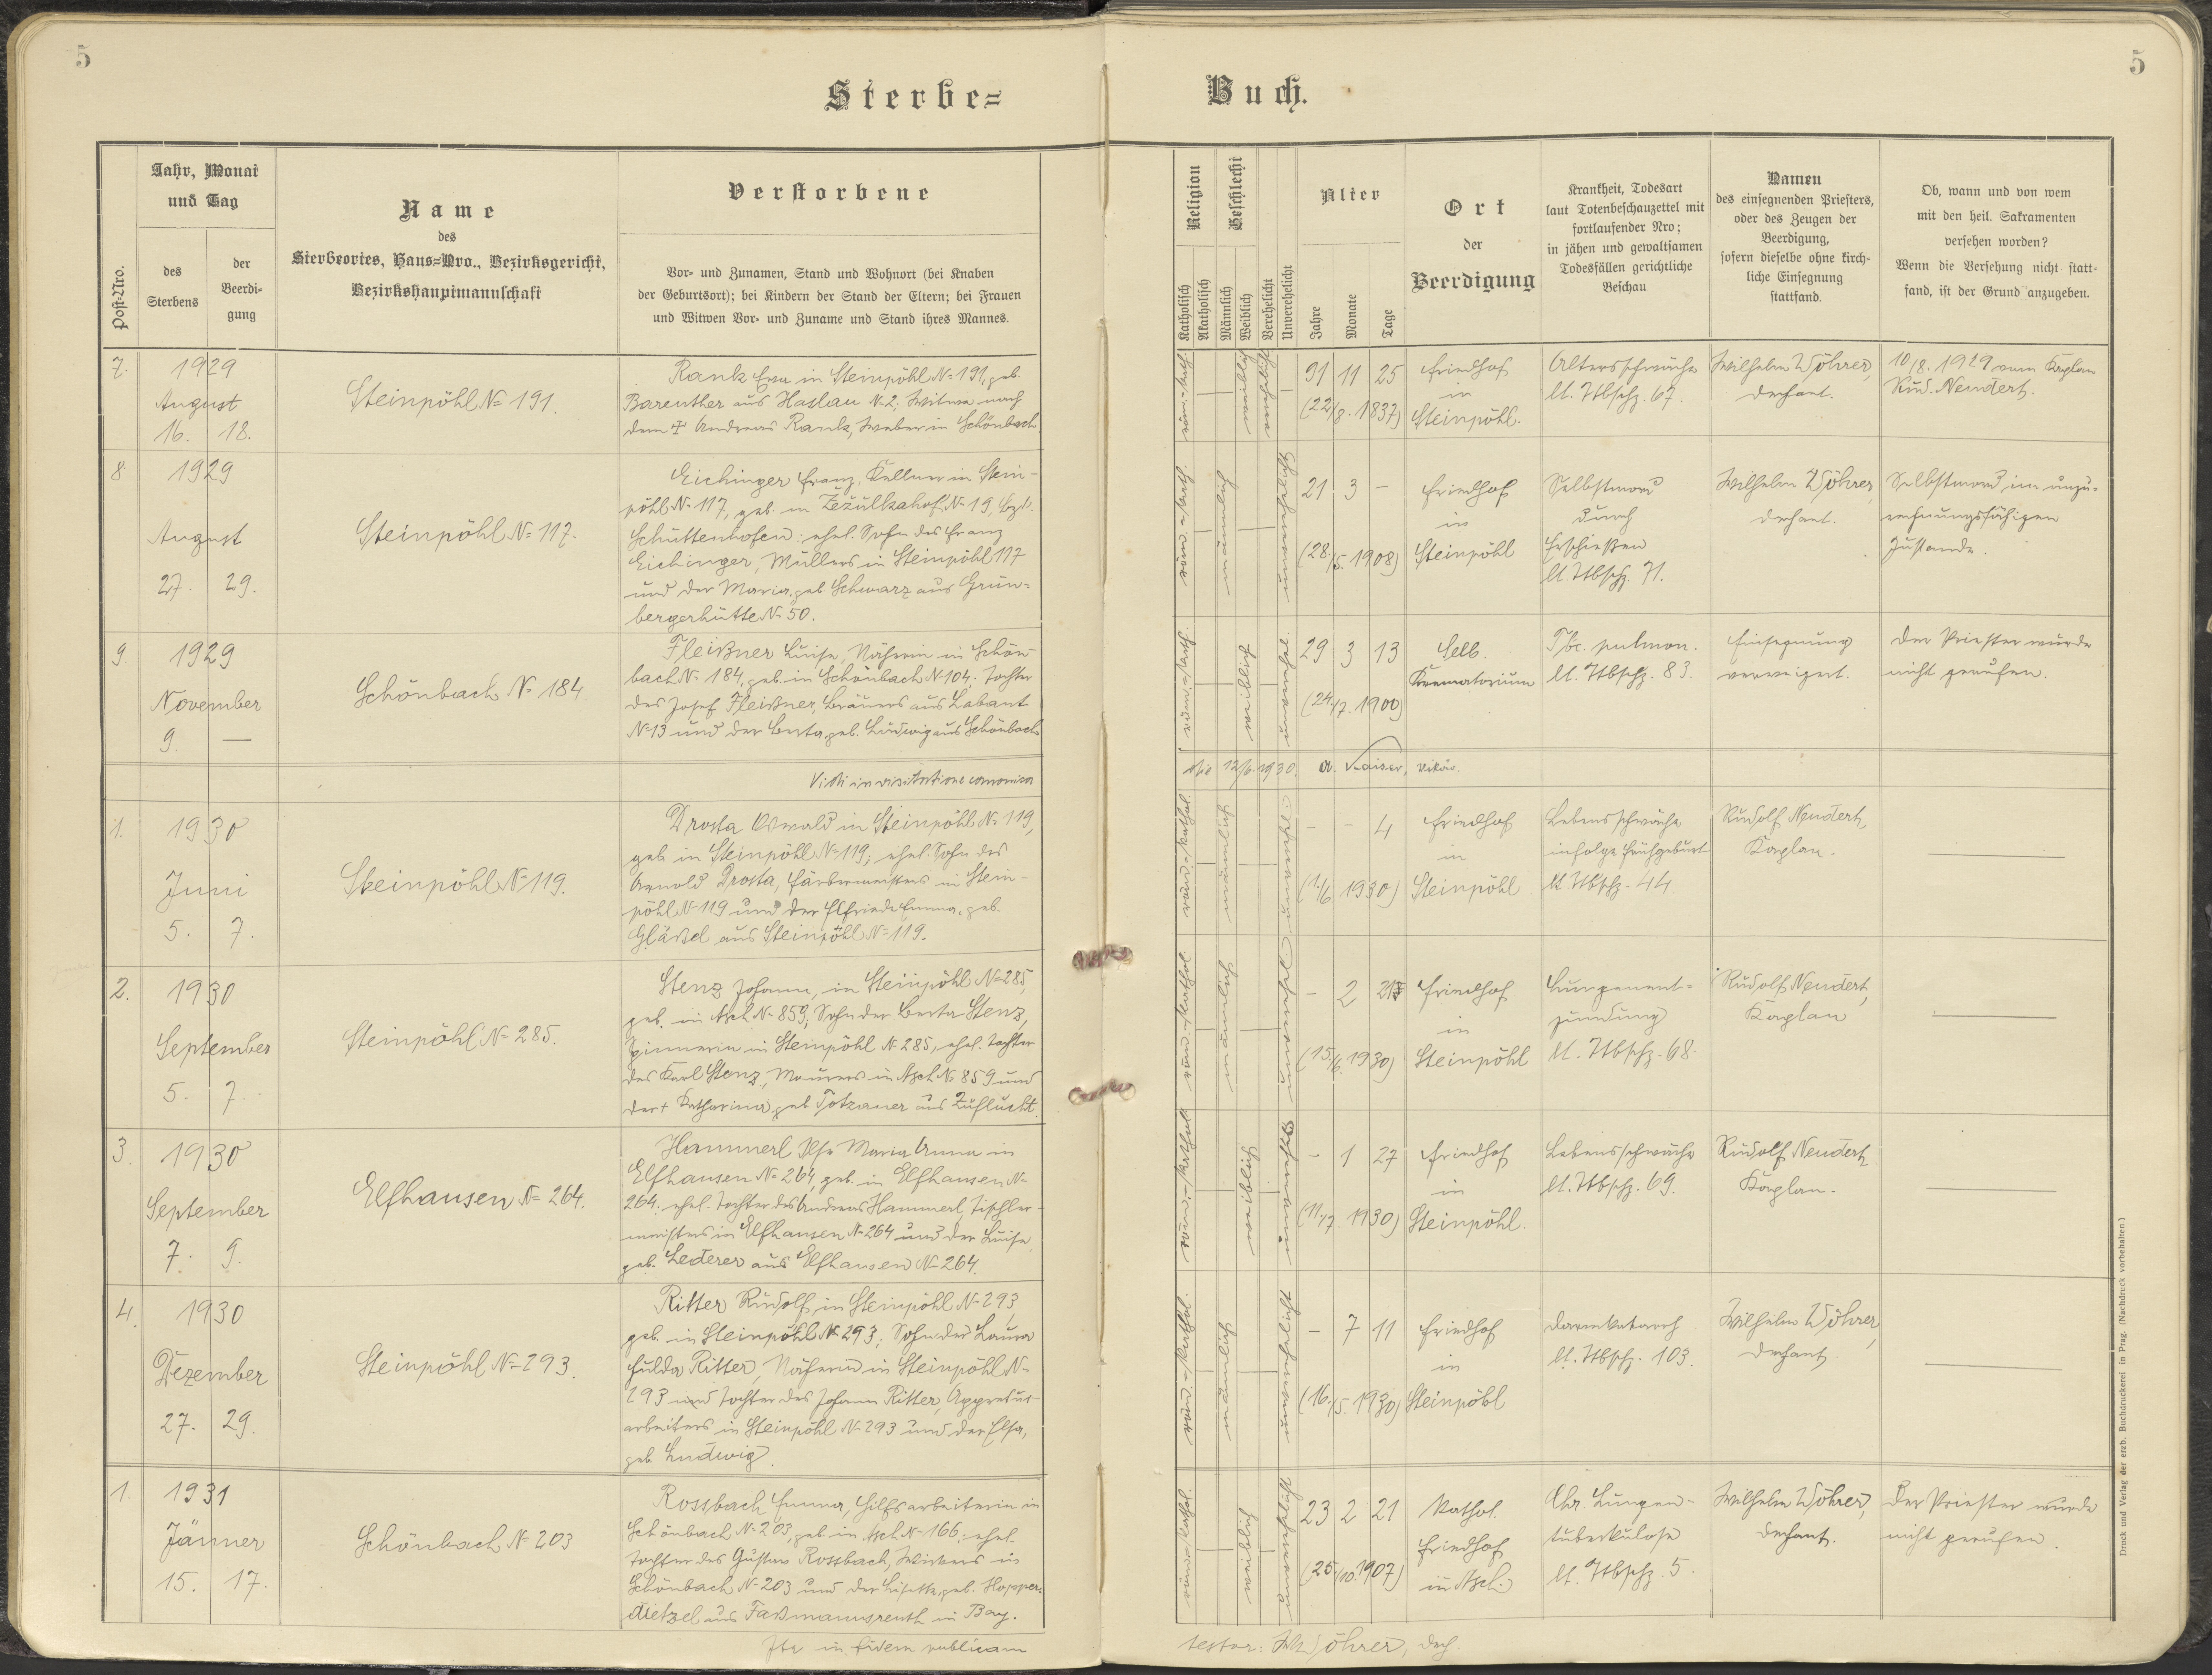 5
5
Sterbe=
Buch.
Post-Nro.
Jahr, Monat
und Tag
des
Sterbens
der
Beerdi-
gung
Name
des
Sterbeortes, Haus-Nro., Bezirksgericht,
Bezirkshauptmannschaft
Verstorbene
Vor- und Zunamen, Stand und Wohnort (bei Knaben
der Geburtsort); bei Kindern der Stand der Eltern; bei Frauen
und Witwen Vor- und Zuname und Stand ihres Mannes.
Religion
Katholisch
Akatholisch
Geschlecht
Männlich
Weiblich
Verehelicht
Unverehelicht
Alter
Jahre
Monate
Tage
Ort
der
Beerdigung
Krankheit, Todesart
laut Totenbeschauzettel mit
fortlaufender Nro;
in jähen und gewaltsamen
Todesfällen gerichtliche
Beschau
Namen
des einsegnenden Priesters,
oder des Zeugen der
Beerdigung,
sofern dieselbe ohne kirch-
liche Einsegnung
stattfand.
Ob, wann und von wem
mit den heil. Sakramenten
versehen worden?
Wenn die Versehung nicht statt-
fand, ist der Grund anzugeben.
7.
1929
August
16. 18.
Steinpöhl No 191.
Rank Eva in Steinpöhl No 191, geb.
Bareuther aus Haslau N. 2, Witwe nach
dem ✝ Andreas Rank, Weber in Schönbach
röm.-kath.
weiblich
verehelicht
91 11 25
(22/8. 1837)
Friedhof
in
Steinpöhl.
Altersschwäche
lt. Ttbschz. 67.
Wilhelm Wöhrer,
Dechant.
10/8. 1929 vom Kaplan
Rud. Neudert.
8.
1929
August
27. 29.
Steinpöhl No 117.
Eichinger Franz, Kellner in Stein-
pöhl No 117, geb. in Žežulkahof No 19, Bzk.
Schüttenhofen: ehel. Sohn des Franz
Eichinger, Müllers in Steinpöhl 117
und der Maria, geb. Schwarz aus Grün-
bergerhütte No 50.
röm.-kath.
männlich
unverehelicht
21 3 -
(28./5. 1908)
Friedhof
in
Steinpöhl
Selbstmord
durch
Erschießen
lt. Ttbschz. 71.
Wilhelm Wöhrer,
Dechant.
Selbstmord im unzu-
rechnungsfähigen
Zustande.
9.
1929
November
9. —
Schönbach No 184.
Fleißner Luise, Näherin in Schön-
bach No 184, geb. in Schönbach No 104, Tochter
des Josef Fleißner, Bräuers aus Labant
No 13 und der Berta geb. Ludwig aus Schönbach
römisch-kath.
weiblich
unverehel.
29 3 13
(24./7. 1900)
Selb.
Krematorium
Tbc. pulmon.
lt. Ttbschz. 83.
Einsegnung
verweigert.
Der Priester wurde
nicht gerufen.
Vidi in visitatione canonica
die 12/6. 1930. A. Kaiser, Vikär.
1.
1930
Juni
5. 7.
Steinpöhl No 119.
Drosta Oswald in Steinpöhl No 119,
geb. in Steinpöhl No 119; ehel. Sohn des
Arnold Drosta, Färbermeisters in Stein-
pöhl No 119 und der Elfriede Emma, geb.
Gläßel aus Steinpöhl No 119.
röm.-kathol.
männlich
unverehel
- - 4
(1./6. 1930)
Friedhof
in
Steinpöhl
Lebensschwäche
infolge Frühgeburt
lt. Ttbschz. 44.
Rudolf Neudert,
Kaplan.
2.
1930
September
5. 7.
Steinpöhl No 285.
Stenz Johann, in Steinpöhl No 285,
geb. in Asch No 859; Sohn der Berta Stenz,
Spinnerin in Steinpöhl No 285, ehel. Tochter
des Karl Stenz, Maurers in Asch No 859 und
der ✝ Katharina geb. Totzauer aus Zuflucht.
röm.-kathol
männlich
unverehel
- 2 21
(15./6. 1930)
Friedhof
in
Steinpöhl
Lungenent-
zündung
lt. Ttbschz. 68.
Rudolf Neudert,
Kaplan
3.
1930
September
7. 9.
Elfhausen No 264.
Hammerl Ilse Maria Anna in
Elfhausen No 264, geb. in Elfhausen No
264. ehel. Tochter des Andreas Hammerl, Tischler-
meisters in Elfhausen No 264 und der Luise
geb. Lederer aus Elfhausen No 264.
röm.-kathol
weiblich
unverehel
- 1 27
(11./7. 1930)
Friedhof
in
Steinpöhl.
Lebensschwäche
lt. Ttbschz. 69.
Rudolf Neudert,
Kaplan.
4.
1930
Dezember
27. 29.
Steinpöhl No 293.
Ritter Rudolf in Steinpöhl No 293,
geb. in Steinpöhl No 293; Sohn der Laura
Hulda Ritter, Näherin in Steinpöhl No
293 und Tochter des Johann Ritter, Appretur-
arbeiters in Steinpöhl No 293 und der Elsa,
geb. Ludwig.
röm.-kathol.
männlich
unverehelicht
- 7 11
(16./5. 1930)
Friedhof
in
Steinpöhl
Darmkatarrh
lt. Ttbschz. 103.
Wilhelm Wöhrer,
Dechant
1.
1931
Jänner
15. 17.
Schönbach No 203
Rossbach Emma, Hilfsarbeiterin in
Schönbach No 203, geb. in Asch No 166; ehel.
Tochter des Gustav Rossbach, Wirkers in
Schönbach No 203 und der Lisette, geb. Hopper-
dietzel aus Faßmannsreuth in Bay.
röm.-kathol.
weiblich
unverehelicht
23 2 21
(25./10. 1907)
Kathol.
Friedhof
in Asch.
Chr. Lungen-
tuberkulose
lt. Ttbschz. 5.
Wilhelm Wöhrer,
Dechant.
Der Priester wurde
nicht gerufen.
Ita in fidem publicam
testor: W. Wöhrer, Dech.
Druck und Verlag der erzb. Buchdruckerei in Prag. (Nachdruck vorbehalten.)